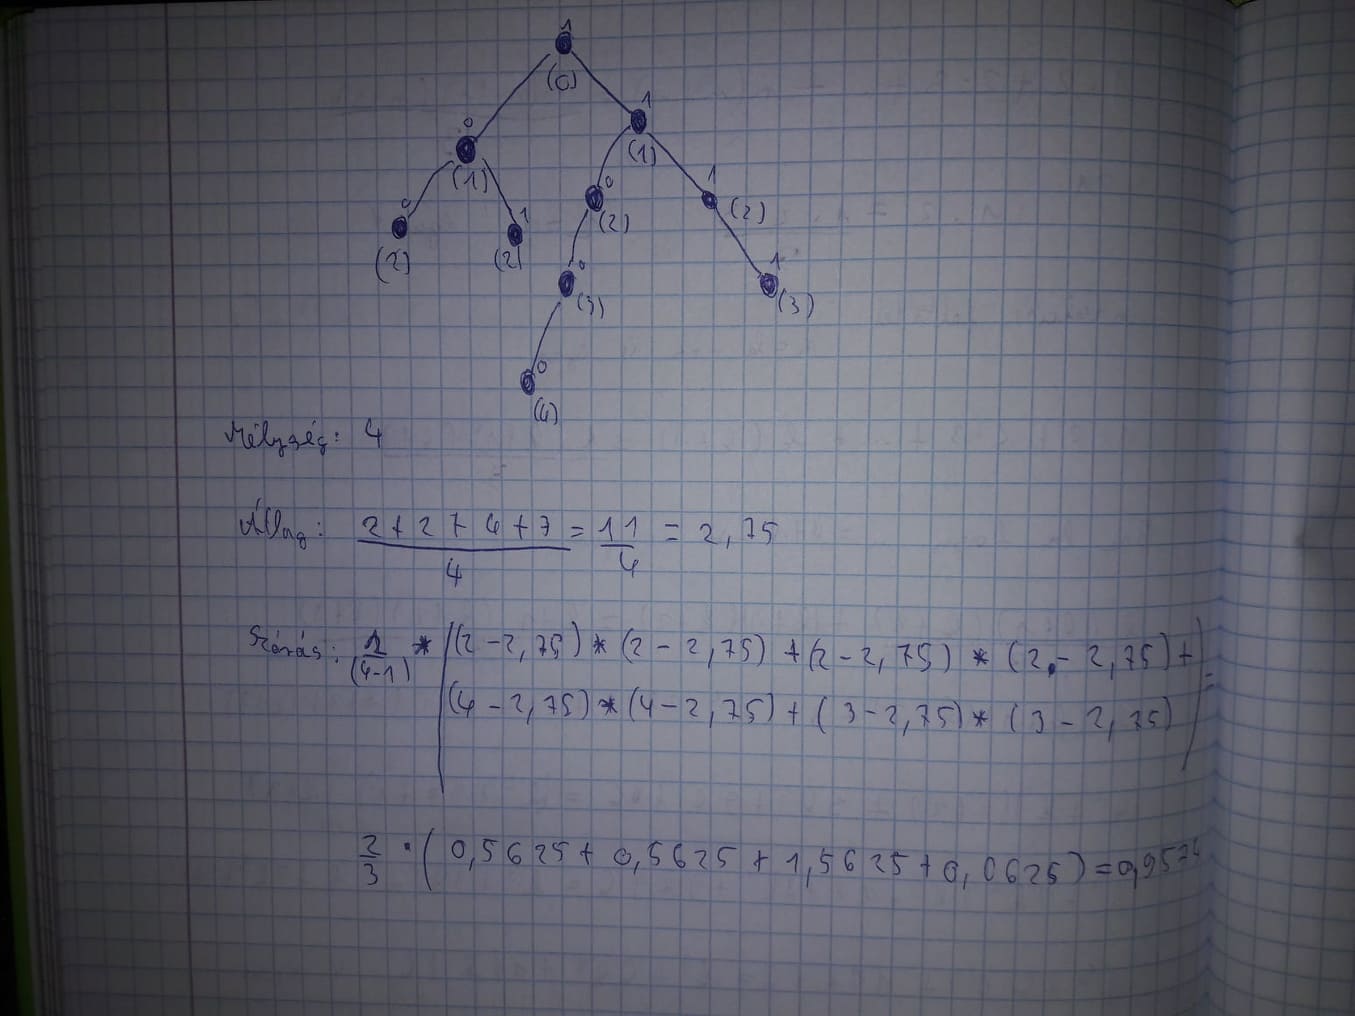 1
(0)
0
1
(1)
(1)
0
1
0
1
(2)
(2)
(2)
(2)
0
1
(3)
(3)
0
(4)
Mélység: 4
Átlag: 2+2+4+3 = 11 = 2,75
4 4
Szórás: 1 * ((2-2,75)*(2-2,75)+(2-2,75)*(2-2,75)+
(4-1)
(4-2,75)*(4-2,75)+(3-2,75)*(3-2,75)) =
2/3 · (0,5625+0,5625+1,5625+0,0625)=0,9574